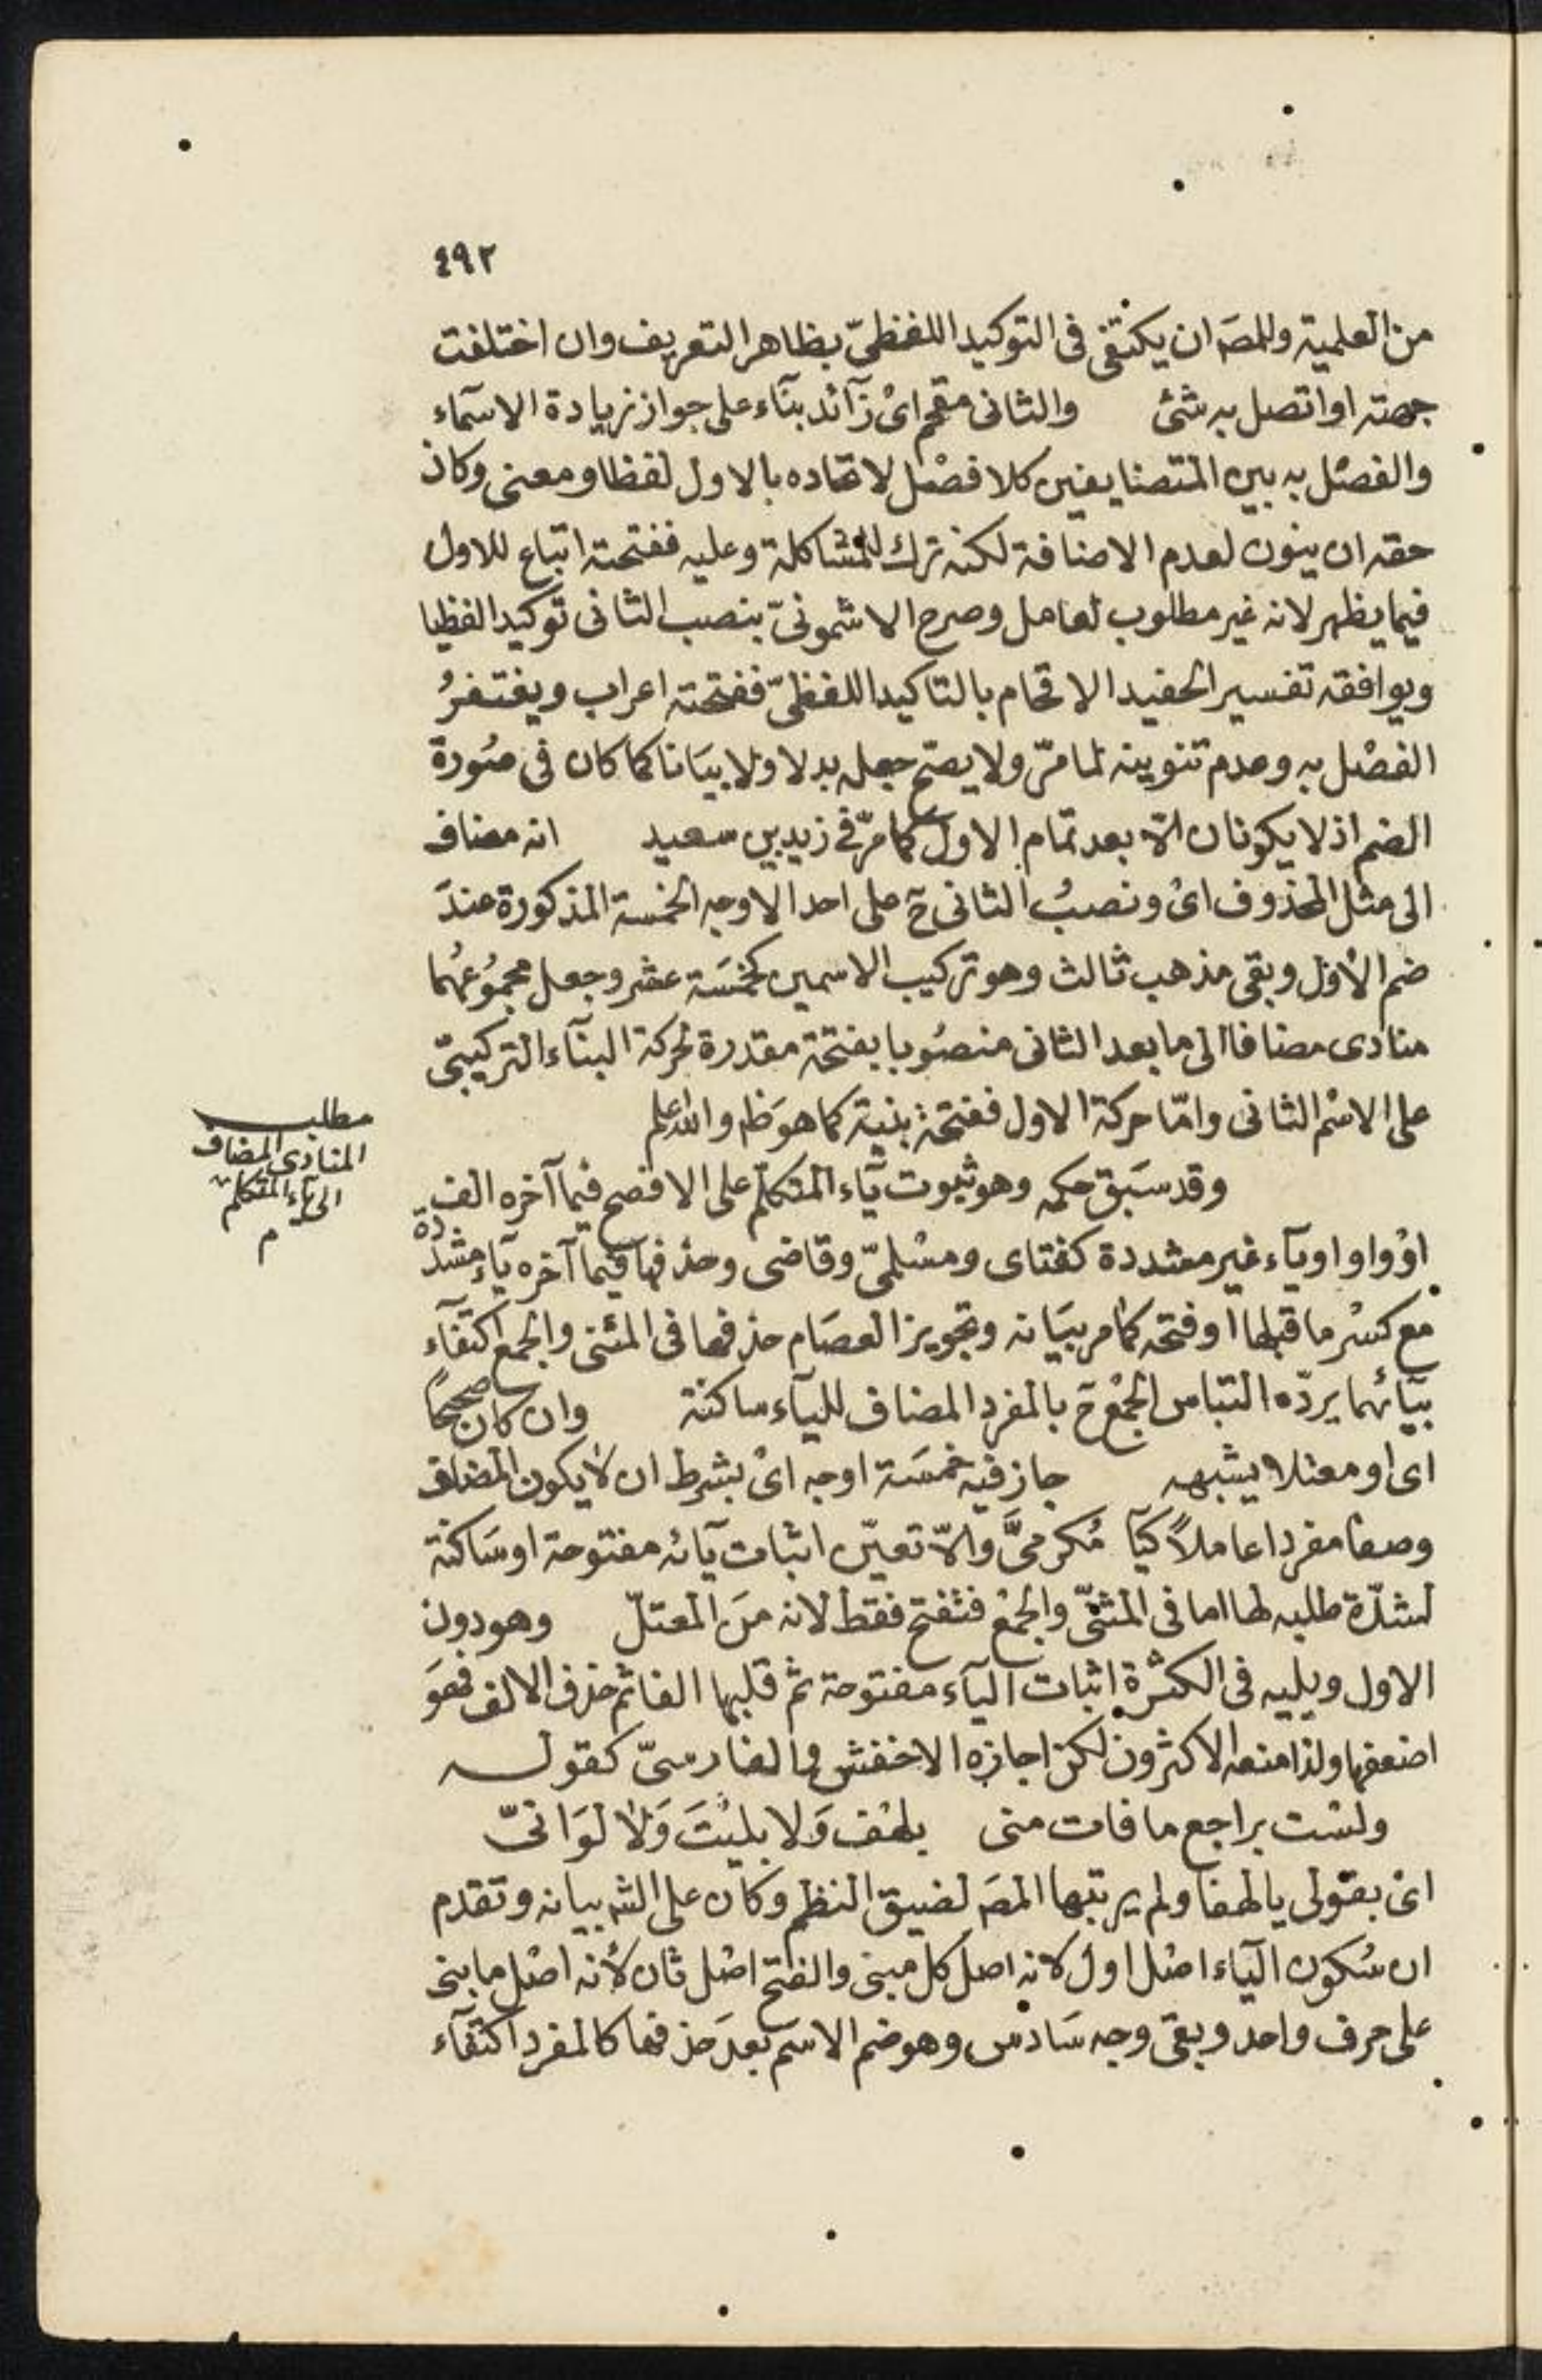 ٤٩٢
من العلمية وللمصَ ان يكتفى فى التوكيد اللفظىّ بظاهر التعريف وان اختلفت
جهته او اتصل به شئ والثانى مقحم اىْ زآئد بنآء على جواز زيادة الاسمآء
والفصْل به بين المتضايفين كلا فصْل لاتحاده بالاول لفظا ومعنى وكان
حقه ان ينون لعدم الاضافة لكنه ترك للمشاكلة وعليه ففتحته اتباع للاول
فيما يظهر لانه غير مطلوب لعامل وصرح الاشمونىّ بنصب الثانى توكيدا لفظيا
ويوافقه تفسير الحفيد الاقحام بالتاكيد اللفظىّ ففتحته اعراب ويغتفرُ
الفصْل به وعدم تنوينه لما مرّ ولا يصحّ جعله بدلا ولا بيَانا كما كان فى صُورة
الضم اذ لا يكونان الّا بعد تمام الاول كما مرّ فى زيد بن سعيد انه مضاف
الى مثل المحذوف اىْ ونصبُ الثانى حٓ على احد الاوجه الخمسة المذكورة عندَ
ضم الاوّل وبقى مذهب ثالث وهو تركيب الاسمين كخمسَة عشر وجعل مجموُعهُما
منادى مضافا الى ما بعد الثانى منصُوبا بفتحة مقدرة لحركة البنآء التركيبىّ
على الاسْم الثانى وامّا حركة الاول ففتحة بنية كما هوَ ظم والله اعلم
مطلب
المنادى المضاف
الى يآء المتكلم
م
وقد سَبق حكمه وهو ثبوت يآء المتكلّم على الافصح فيما آخره الف
اوْ واو او يآء غير مشددة كفتاى ومسْلمىّ وقاضى وحذفها فيما آخره يآء مشدّدة
مع كسْر ما قبلها او فتحه كما مر بيَانه وتجويز العصَام حذفها فى المثنى والجمع اكتفآء
بيَائهما يردّه التباس الجمْع حٓ بالمفرد المضاف لليآء ساكنة وان كان صحيحًا
اى او معتلا يشبهه جاز فيه خمسَة اوجه اىْ بشرط ان لا يكون المضاف
وصفا مفردا عاملاً كيآ مُكرمىَّ والّا تعيّن اثبات يآئه مفتوحة او سَاكنة
لشدّة طلبه لها اما فى المثنّى والجمْع فتفتح فقط لانه منَ المعتلّ وهو دون
الاول ويليه فى الكثْرة اثبات اليآء مفتوحة ثم قلبها الفا ثم حذف الالف فهوَ
اضعفها ولذا منعه الاكثرون لكن اجازه الاخفش والفارسىّ كقوله
ولسْت براجع ما فات منى بلهْف وَلا بليْتَ وَلا لوَ انىّ
اىْ بقولى يا لهفا ولم يرتبها المصَ لضيق النظم وكان على الشه بيانه وتقدم
ان سُكون اليآء اصْل اول لانه اصل كل مبنى والفتح اصْل ثان لأنه اصْل ما بنى
على حرف واحد وبقى وجه سَادس وهو ضم الاسم بعدَ حذفها كالمفرد اكتفآء